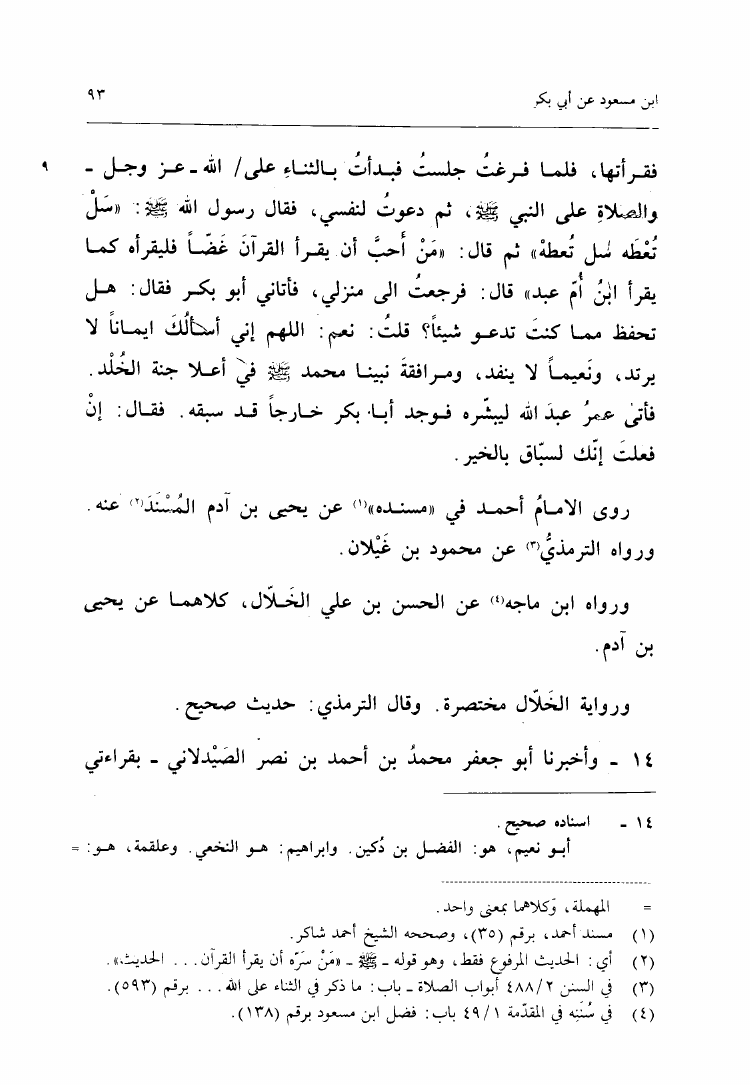 ابن مسعود عن أبي بكر
٩٣
فقرأتها، فلما فرغتُ جلستُ فبدأتُ بالثناءِ على/ الله ـ عز وجل ـ ٩
والصلاةِ على النبي ﷺ، ثم دعوتُ لنفسي، فقال رسول الله ﷺ: «سَلْ
تُعْطَه سَل تُعطهْ» ثم قال: «مَنْ أحبَّ أن يقرأ القرآنَ غَضّاً فليقرأه كما
يقرأ ابنُ أُمّ عبد» قال: فرجعتُ الى منزلي، فأتاني أبو بكر فقال: هل
تحفظ مما كنتَ تدعو شيئاً؟ قلتُ: نعم: اللهم إني أسألُكَ ايماناً لا
يرتد، ونَعيماً لا ينفد، ومرافقةَ نبينا محمد ﷺ في أعلا جنة الخُلْد.
فأتى عمرُ عبدَ الله ليبشّره فوجد أبا بكر خارجاً قد سبقه. فقال: إنْ
فعلتَ إنّك لسبّاق بالخير.
روى الامامُ أحمد في «مسنده»(١) عن يحيى بن آدم المُسْنَدَ(٢) عنه.
ورواه الترمذيُّ(٣) عن محمود بن غَيْلان.
ورواه ابن ماجه(٤) عن الحسن بن علي الخَلاّل، كلاهما عن يحيى
بن آدم.
ورواية الخَلاّل مختصرة. وقال الترمذي: حديث صحيح.
١٤ ـ وأخبرنا أبو جعفر محمدُ بن أحمد بن نصر الصَيْدلاني ـ بقراءتي
١٤ ـ اسناده صحيح.
أبو نعيم، هو: الفضل بن دُكين. وابراهيم: هو النخعي. وعلقمة، هو: =
= المهملة، وكلاهما بمعنى واحد.
(١) مسند أحمد، برقم (٣٥)، وصححه الشيخ أحمد شاكر.
(٢) أي: الحديث المرفوع فقط، وهو قوله ـ ﷺ ـ «مَنْ سَرّه أن يقرأ القرآن... الحديث».
(٣) في السنن ٤٨٨/٢ أبواب الصلاة ـ باب: ما ذكر في الثناء على الله... برقم (٥٩٣).
(٤) في سُنَنِه في المقدّمة ٤٩/١ باب: فضل ابن مسعود برقم (١٣٨).